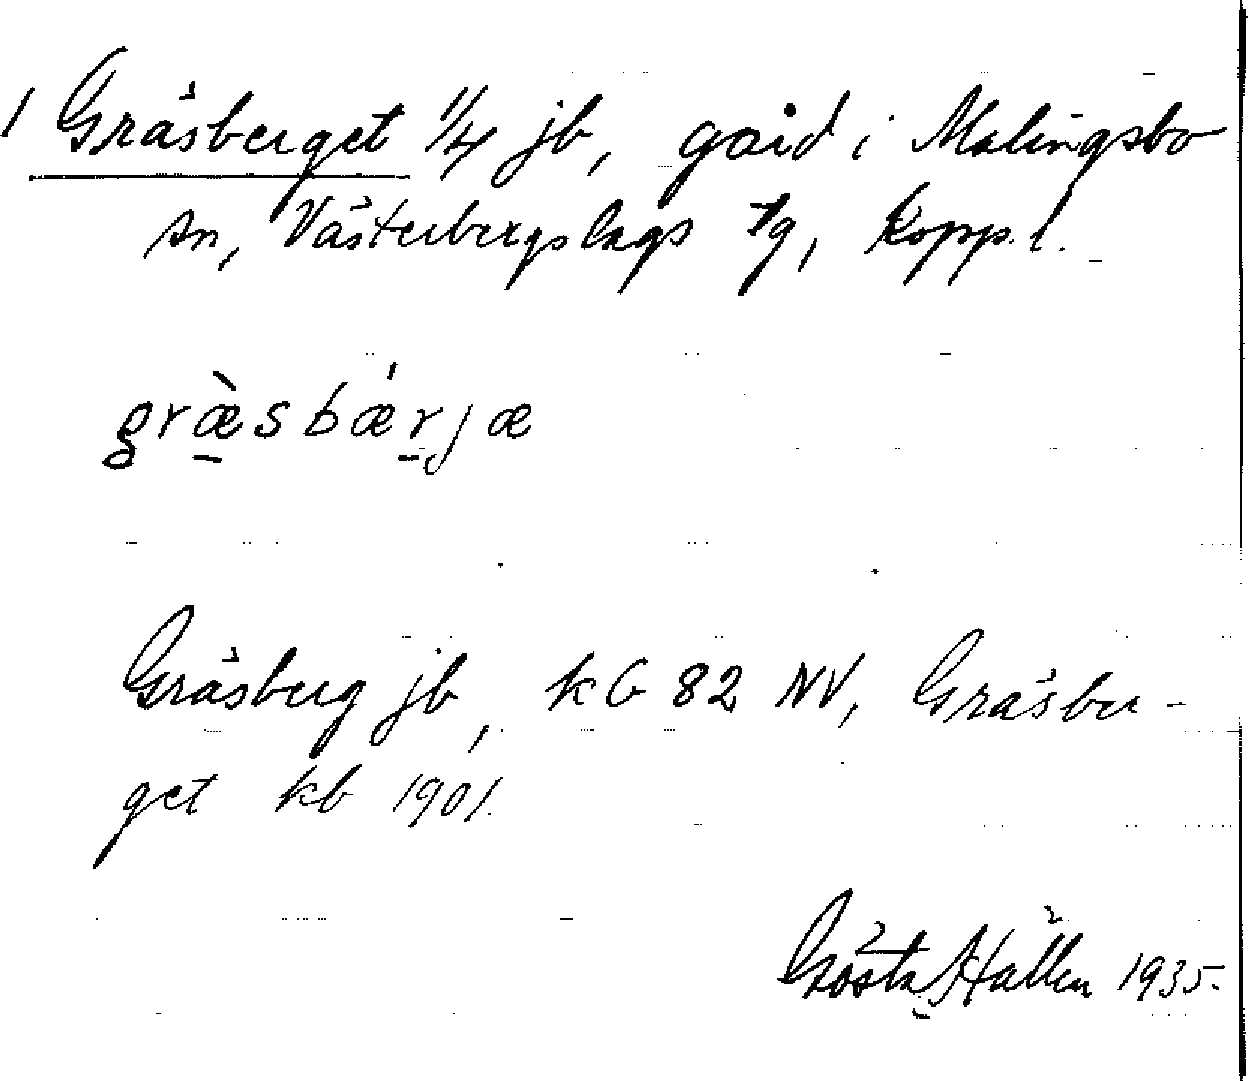 1 Gräsberget 1/4 jb, gård i Malingsbo
sn, Västerbergslags tg, Kopp. l.
græ̀sbǽrjæ
Gräsberg jb, kG 82 NV, Gräsber-
get kb 1901.
Gösta Hallén 1935.